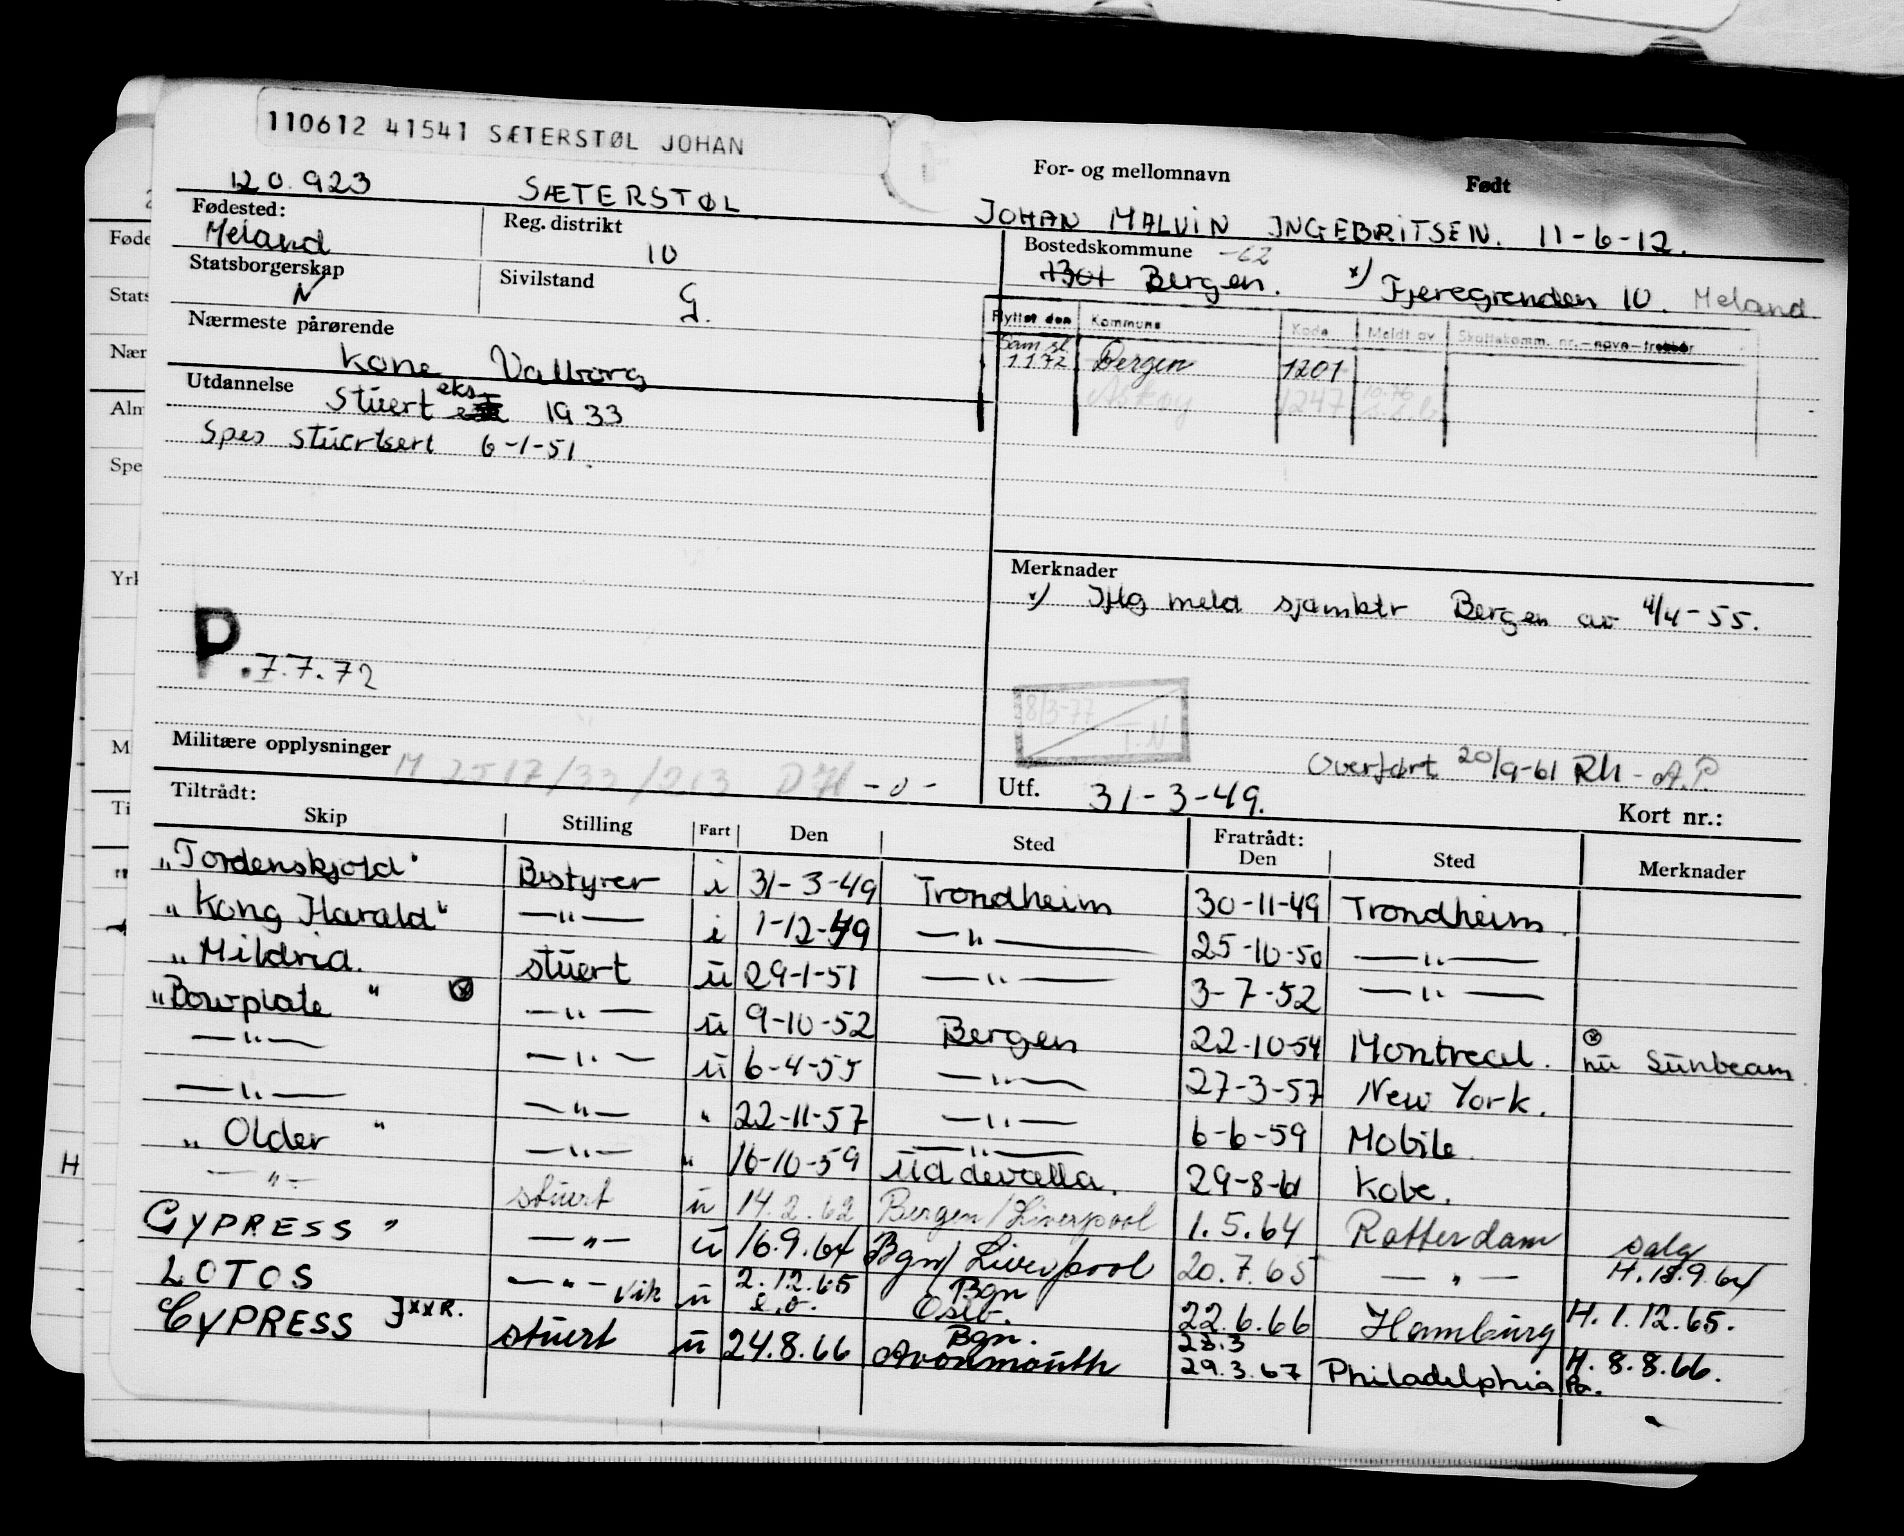 110612 41541 SÆTERSTØL JOHAN
120.923 SÆTERSTØL
For- og mellomnavn Født
JOHAN MALVIN INGEBRITSEN. 11-6-12.
Fødested: Meland
Reg. distrikt 10
Bostedskommune -62
1301 Bergen. x) Fjeregrenden 10. Meland
Statsborgerskap N
Sivilstand G.
Flyttet den Kommune Kode Meldt av Skattekomm. nr. - navn - trekkår
Sam.sl. 1.1.72 Bergen 1201
Askøy 1247
Nærmeste pårørende
Kone Valborg
Utdannelse
Stuert eks 1933
Spes stuertsert 6-1-51.
P.7.7.72
Merknader
x) Iflg meld sjømktr Bergen av 4/4-55.
8/3-77
T.N
Overført 20/9-61 Rh - A.P
Militære opplysninger
M 2517/33/213 -0-
Utf. 31-3-49.
Kort nr.:
Tiltrådt:
Skip Stilling Fart Den Sted Fratrådt: Den Sted Merknader
"Tordenskjold" Bestyrer i 31-3-49 Trondheim 30-11-49 Trondheim
"Kong Harald" —"— i 1-12-49 —"— 25-10-50 —"—
"Mildrid. stuert u 29-1-51 —"— 3-7-52 —"—
"Bowplate" ⓧ —"— u 9-10-52 Bergen 22-10-54 Montreal. ⓧ nu Sunbeam
—"— —"— u 6-4-55 —"— 27-3-57 New York.
—"— —"— " 22-11-57 —"— 6-6-59 Mobile
"Older" —"— " 16-10-59 Uddevalla. 29-8-61 Kobe.
—"— stuert u 14.2.62 Bergen/Liverpool 1.5.64 Rotterdam salg
CYPRESS " —"— u 16.9.64 Bgn/Liverpool 20.7.65 —"— H.15.9.64
LOTOS —"— vik u 2.12.65 Bgn Oslo. 22.6.66 Hamburg H.1.12.65.
CYPRESS JxxR. stuert u 24.8.66 Bgn. Avonmouth 23.3 29.3.67 Philadelphia H. 8.8.66. Pa.
Føde
Stats
Nær
Alm
Spe
Yrk
M
Ti
H